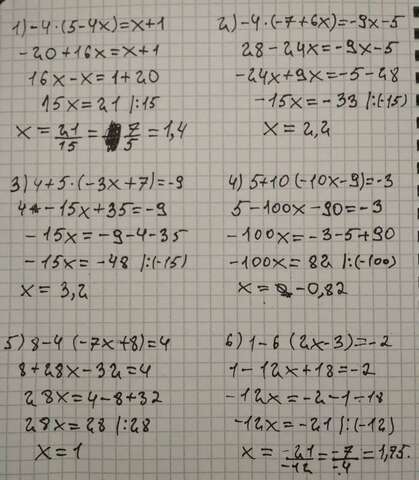 1) -4·(5-4x)=x+1
-20+16x=x+1
16x-x=1+20
15x=21 |:15
x=21/15=7/5=1,4
2) -4·(-7+6x)=-9x-5
28-24x=-9x-5
-24x+9x=-5-28
-15x=-33 |:(-15)
x=2,2
3) 4+5·(-3x+7)=-9
4-15x+35=-9
-15x=-9-4-35
-15x=-48 |:(-15)
x=3,2
4) 5+10(-10x-9)=-3
5-100x-90=-3
-100x=-3-5+90
-100x=82 |:(-100)
x=-0,82
5) 8-4(-7x+8)=4
8+28x-32=4
28x=4-8+32
28x=28 |:28
x=1
6) 1-6(2x-3)=-2
1-12x+18=-2
-12x=-2-1-18
-12x=-21 |:(-12)
x=-21/-12=-7/-4=1,75.